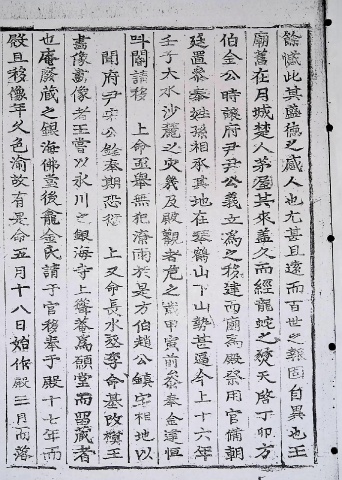 餘憾此其盛德之感人也尤甚且遠而百世之報固自異也王
廟舊在月城楚人茅屋其來盖久而經龍蛇之變天啓丁卯方
伯金公時讓府尹尹公義立爲之移建而廟爲殿祭用官備朝
廷置參奉姓孫相承其地在琴鶴山下山勢甚逼今上十六年
壬子大水沙麓之灾幾及殿觀者危之歲甲寅前參奉金達恒
叫閤請移 上命亟擧無犯潦雨於是方伯趙公鎭宅相地以
聞府尹宋公 奉期恐後 上又命長水察李命基改模王
畵像畵像者王嘗以永川之銀海寺上聳菴爲願堂而留藏者
也庵廢藏之銀海佛堂後龍金民請于官移奉于殿十七年而
殿且移像年久色渝故有是命五月十八日始作殿三月而落